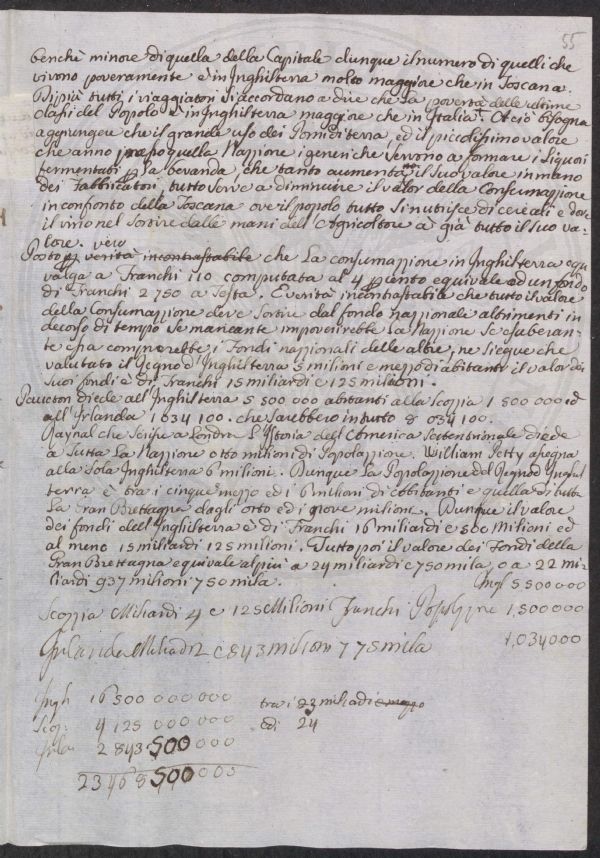 55
benchè minore di quella della Capitale dunque il numero di quelli che
vivono poveramente è in Inghilterra molto maggiore che in Toscana.
Di più tutti i viaggiatori si accordano a dire che la povertà delle ultime
classi del Popolo è in Inghilterra maggiore che in Italia. A ciò bisogna
aggiungere che il grande uso dei Pomi di terra, ed il piccolissimo valore
che anno presso quella Nazione i generi che servono a formare i Liquori
fermentati per bevanda, che tanto aumentano il suo valore in mano
dei Fabbricatori, tutto serve a diminuire il valor della Consumazione
in confronto della Toscana ove il popolo tutto si nutrisce di cereali e dove
il vino nel sortire dalle mani dell'Agricoltore a già tutto il suo va-
lore. vero
Posto per verità incontrastabile che La consumazione in Inghilterra equi
valga a Franchi 110 computata al 4 per cento equivale ad un fondo
di Franchi 2750 a Testa. È verità incontrastabile che tutto il valore
della Consumazione deve sortire dal fondo nazionale altrimenti in
decorso di tempo se mancante impoverirebbe La Nazione se esuberan-
te essa comprerebbe i Fondi nazionali delle altre, ne siegue che
valutato il Regno d'Inghilterra 5 milioni e mezzo di abitanti il valor dei
suoi fondi è di Franchi 15 miliardi e 125 milioni.
Paucton diede all'Inghilterra 5 500 000 abitanti alla Scozia 1 500 000 ed
all'Irlanda 1 034 100. che sarebbero in tutto 8 034 100.
Raynal che scrisse a Londra L'Istoria dell'America Settentrionale diede
a tutta La Nazione otto milioni di Popolazione. William Petty assegna
alla sola Inghilterra 6 milioni. Dunque La Popolazione del Regno d'Inghil
terra è tra i cinque mezzo ed i 6 milioni di abitanti e quella di tutta
La Gran Brettagna dagli otto ed i nove milioni. Dunque il valore
dei fondi dell'Inghilterra è di Franchi 16 miliardi e 500 Milioni ed
al meno 15 miliardi 125 milioni. Tutto poi il valore dei Fondi della
Gran Brettagna equivale al più a 24 miliardi e 750 mila, o a 22 mi-
liardi 937 milioni 750 mila.
Ingl 5 500 000
Scozzia Miliardi 4 e 125 Milioni Franchi 1,500 000
Irlanda Miliardi 2 e 843 milioni 775 mila 1,034000
Ingh 16 500 000 000 tra i 23 miliardi e mezzo
Scoz: 4 125 000 000 ed i 24
Irlan 2 843 500 000
23 468 500 000